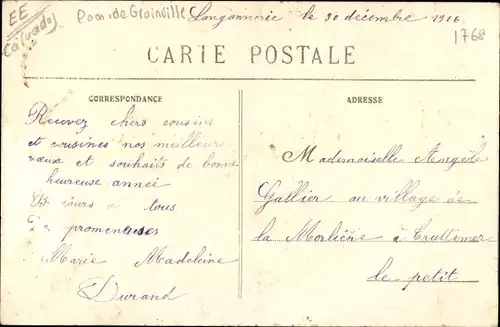 EE
Calvados
Pont de Grainville
Longannerie le 30 décembre 1916
1768
CARTE POSTALE
CORRESPONDANCE
ADRESSE
Recevez chers cousins
et cousines nos meilleurs
vœux et souhaits de bonne
heureuse année
jours a tous
promeneuses
Marie Madeleine
Durand
Mademoiselle Angèle
Gallier au village de
la Morlière à Truttemer
le petit